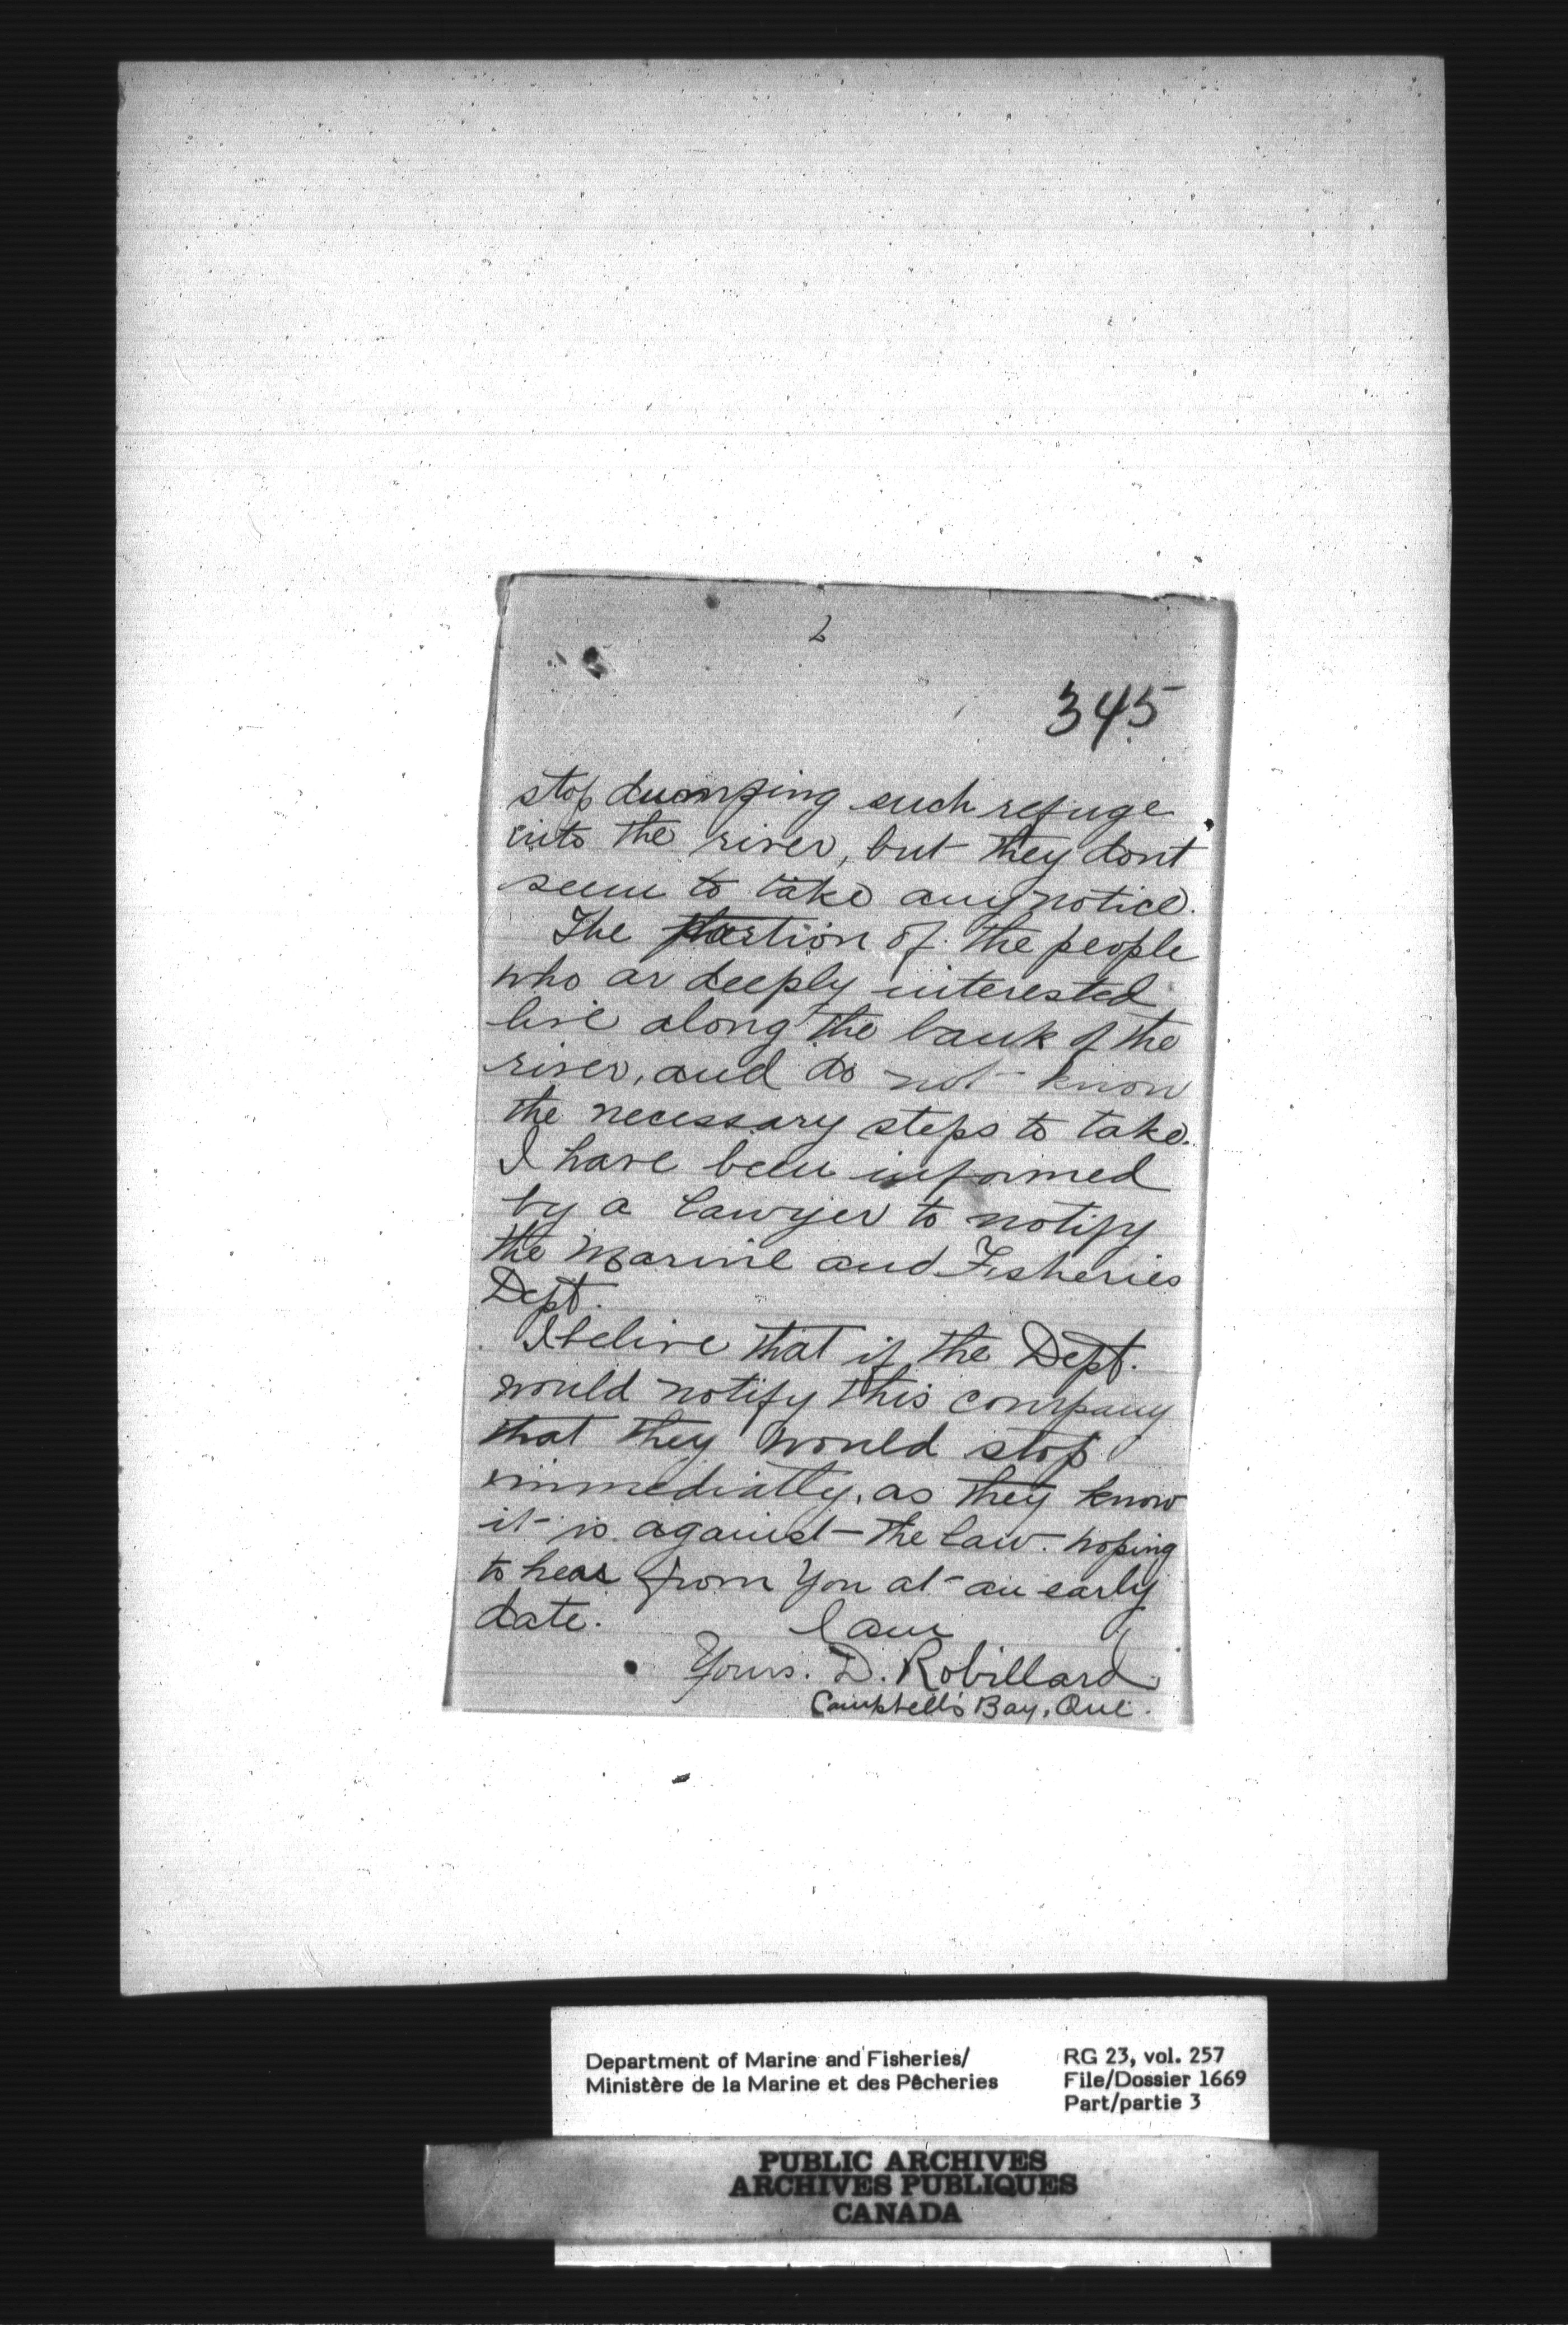 2
345
stop dumping such refuge
into the river, but they dont
seem to take any notice.
The portion of the people
who ar deeply interested
live along the bank of the
river, and do not know
the necessary steps to take.
I have been informed
by a lawyer to notify
the Marine and Fisheries
Dept.
I belive that if the Dept.
would notify this company
that they would stop
immediatly, as they know
it is against the law. hoping
to hear from you at an early
date. I am
Yours. D. Robillard
Campbell's Bay, Que.
Department of Marine and Fisheries/
Ministère de la Marine et des Pêcheries
RG 23, vol. 257
File/Dossier 1669
Part/partie 3
PUBLIC ARCHIVES
ARCHIVES PUBLIQUES
CANADA